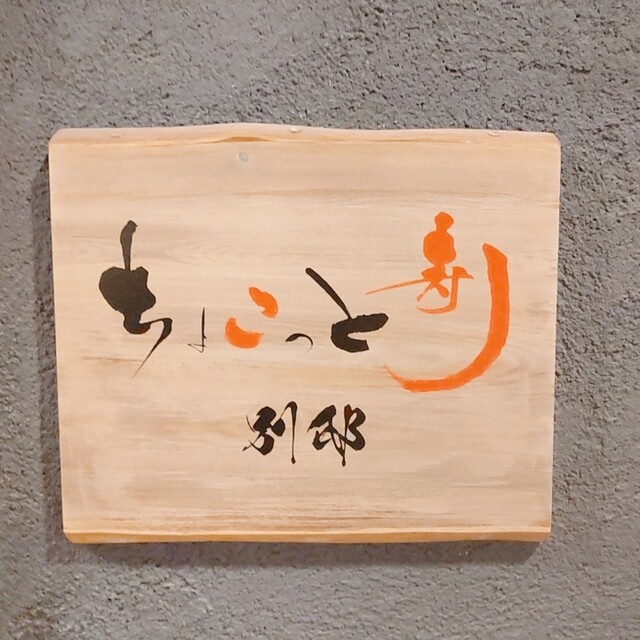 ちょこっと寿し
別邸